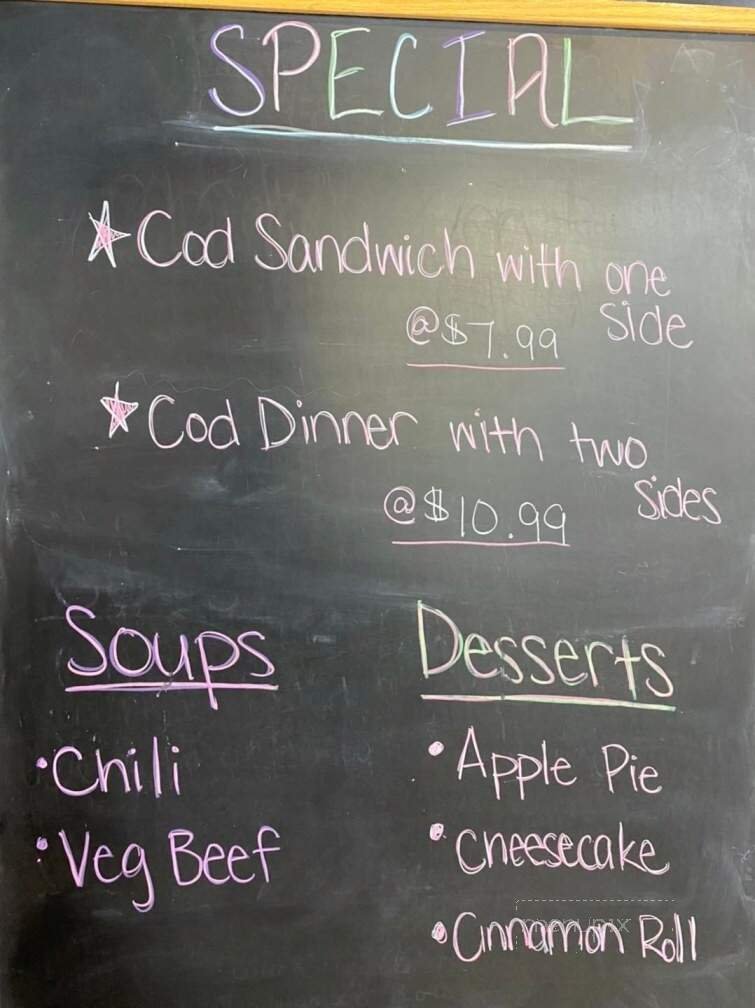 SPECIAL
Cod Sandwich with one
side
@$7.99
Cod Dinner with two
sides
@$10.99
Soups
• Chili
• Veg Beef
Desserts
• Apple Pie
• Cheesecake
• Cinnamon Roll
menupix